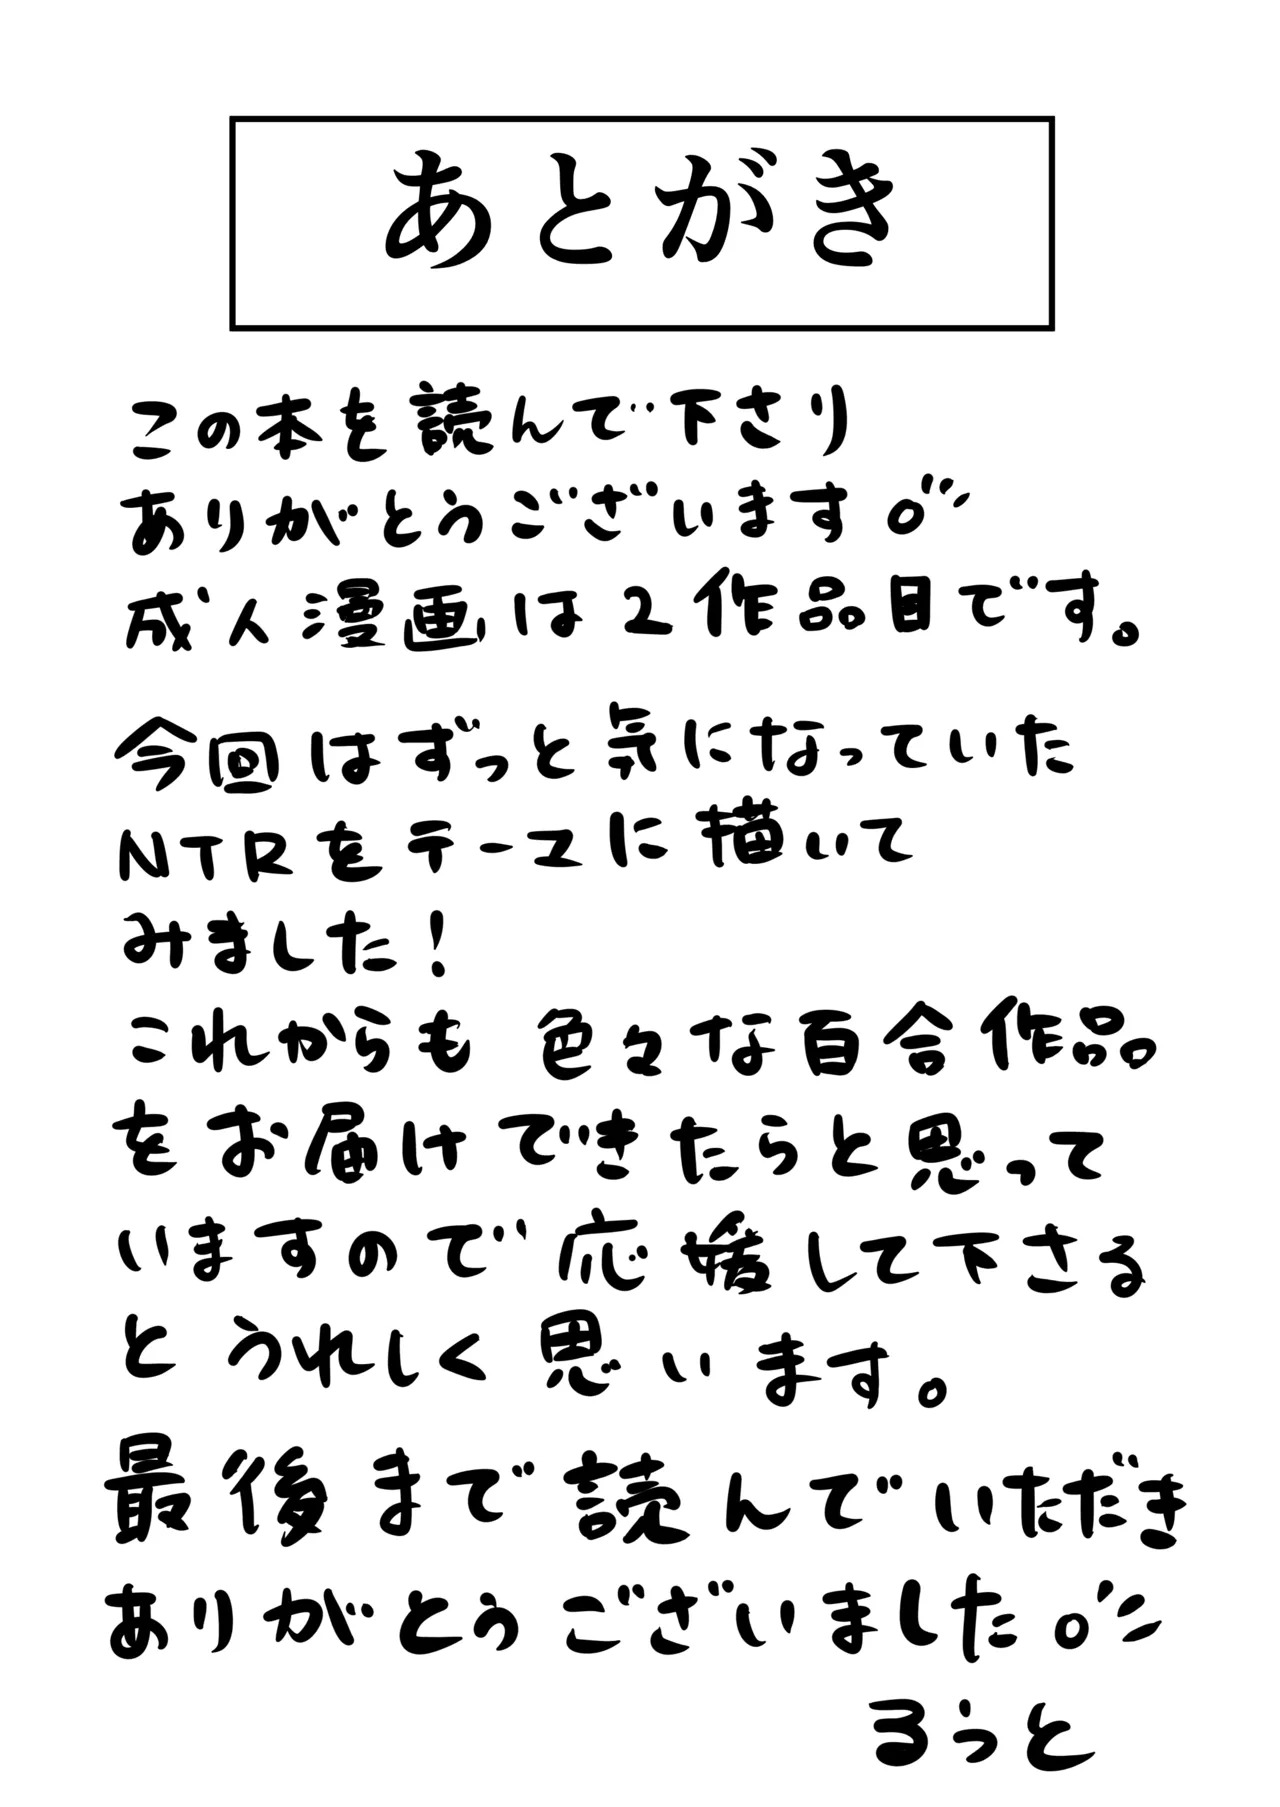 あとがき
この本を読んで下さり
ありがとうございます。
成人漫画は2作品目です。
今回はずっと気になっていた
NTRをテーマに描いて
みました!
これからも色々な百合作品
をお届けできたらと思って
いますので応援して下さる
とうれしく思います。
最後まで読んでいただき
ありがとうございました。
るうと